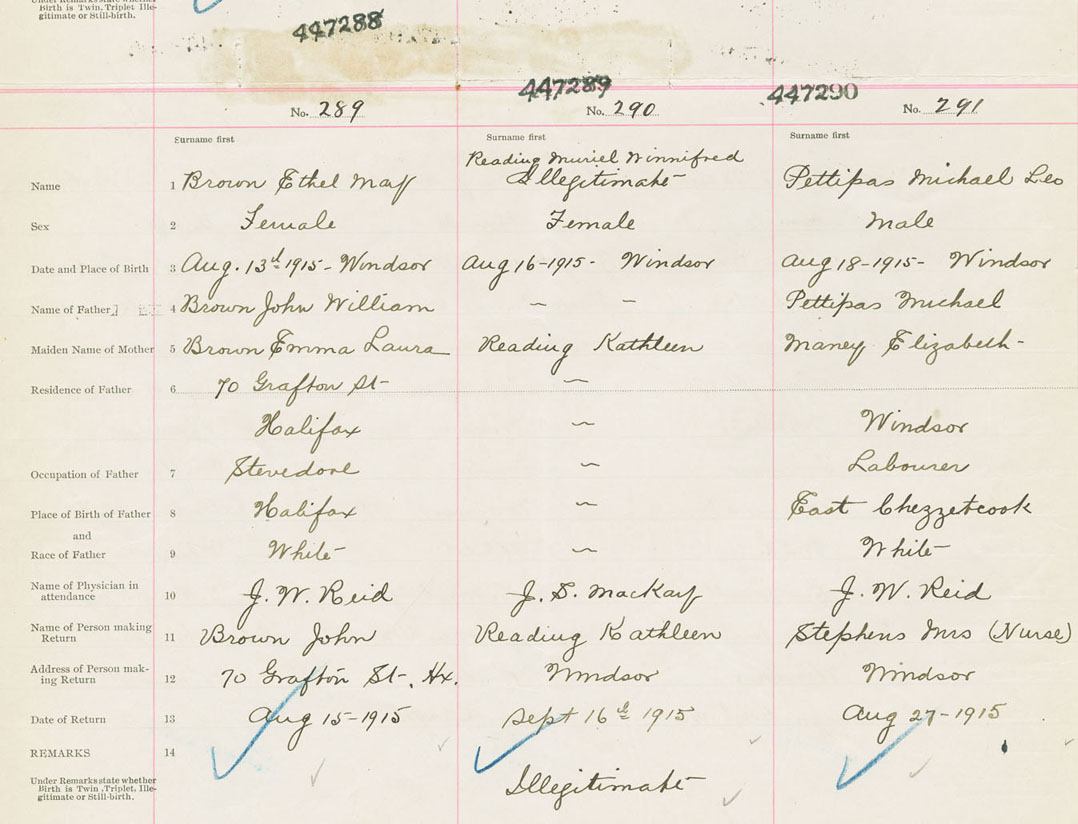 Under Remarks state whether
Birth is Twin, Triplet, Ille-
gitimate or Still-birth.
447288
447289
447290
No. 289
No. 290
No. 291
Surname first
Surname first
Surname first
Reading Muriel Winnifred
Name 1 Brown Ethel May Illegitimate Pettipas Michael Leo
Sex 2 Female Female Male
Date and Place of Birth 3 Aug. 13th 1915 - Windsor Aug 16-1915 - Windsor Aug 18-1915 - Windsor
Name of Father 4 Brown John William – – Pettipas Michael
Maiden Name of Mother 5 Brown Emma Laura Reading Kathleen Maney Elizabeth
Residence of Father 6 70 Grafton St –
Halifax – Windsor
Occupation of Father 7 Stevedore – Labourer
Place of Birth of Father 8 Halifax – East Chezzetcook
and
Race of Father 9 White – White
Name of Physician in
attendance 10 J. W. Reid J. S. MacKay J. W. Reid
Name of Person making
Return 11 Brown John Reading Kathleen Stephens Mrs (Nurse)
Address of Person mak-
ing Return 12 70 Grafton St., Hx. Windsor Windsor
Date of Return 13 Aug 15-1915 Sept 16th 1915 Aug 27-1915
REMARKS 14
Under Remarks state whether
Birth is Twin, Triplet, Ille-
gitimate or Still-birth.
Illegitimate